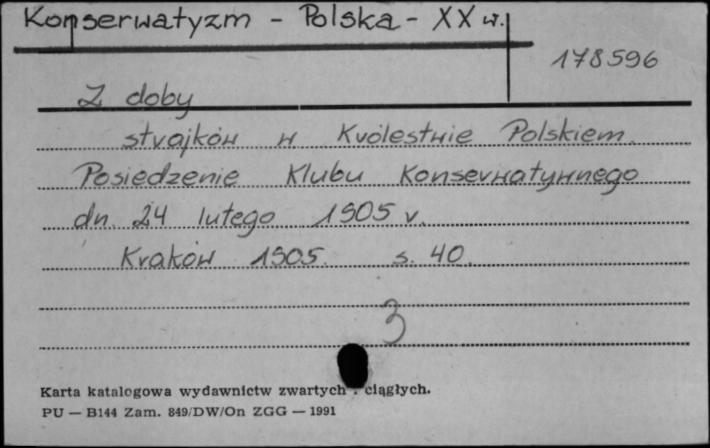 Konserwatyzm - Polska - XX w.
178596
Z doby
strajków w Królestwie Polskiem.
Posiedzenie Klubu Konserwatywnego
dn. 24 lutego 1905 r.
Kraków 1905. s. 40.
3
Karta katalogowa wydawnictw zwartych i ciągłych.
PU — B144 Zam. 849/DW/On ZGG — 1991